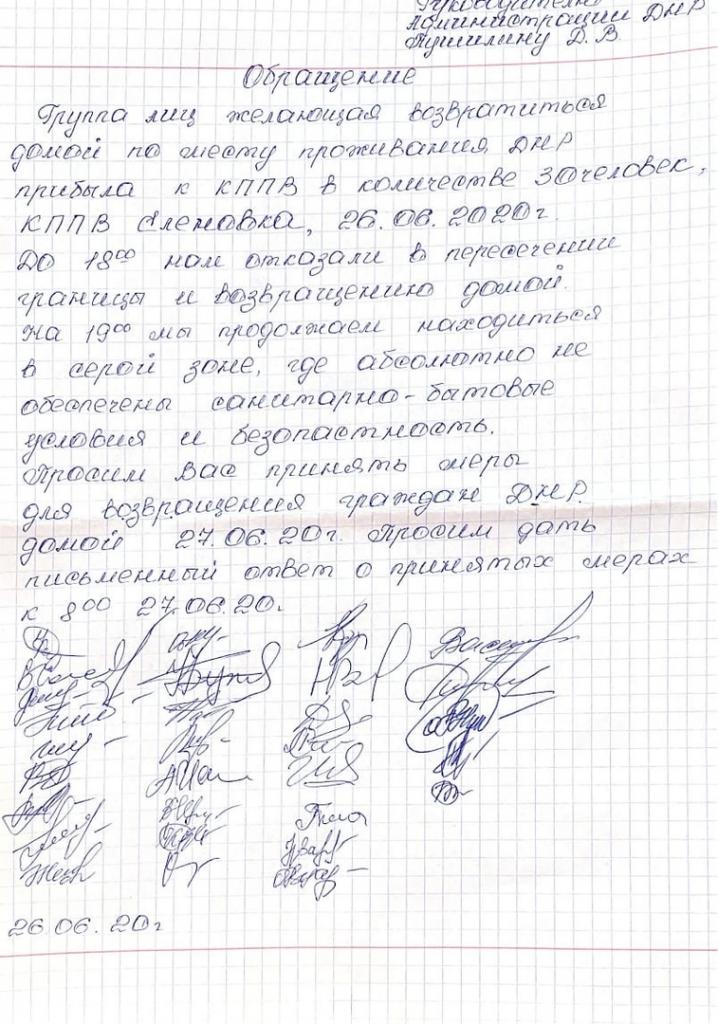 Руководителю
Администрации ДНР
Пушилину Д.В
Обращение
Группа лиц желающая возвратиться
домой по месту проживания ДНР
прибыла к КППВ в количестве 30человек,
КППВ Еленовка, 26.06.2020г.
До 18⁰⁰ нам отказали в пересечении
границы и возвращению домой.
На 19⁰⁰ мы продолжаем находиться
в серой зоне, где абсолютно не
обеспечены санитарно-бытовые
условия и безопастность.
Просим Вас принять меры
для возвращения граждан ДНР.
домой 27.06.20г. Просим дать
письменный ответ о принятых мерах
к 8⁰⁰ 27.06.20г.
26.06.20г